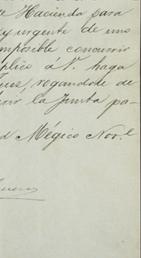 e Hacienda para
y urgente de uno
imposible concurrir
plico á V. haga
que, rogandole de
rir la Junta pa-
d Mégico Nov.e